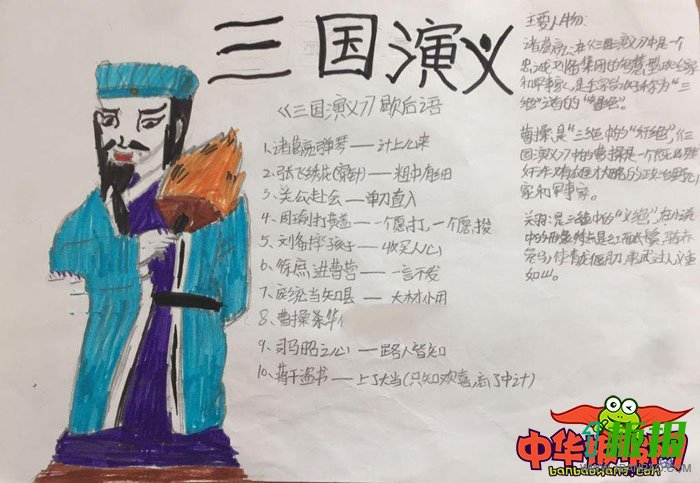 三国演义
《三国演义》歇后语
1、诸葛亮弹琴——计上心来
2、张飞绣花(穿针)——粗中有细
3、关公赴会——单刀直入
4、周瑜打黄盖——一个愿打,一个愿挨
5、刘备摔孩子——收买人心
6、徐庶进曹营——一言不发
7、庞统当知县——大材小用
8、曹操杀华
9、司马昭之心——路人皆知
10、蒋干盗书——上了大当(只知欢喜,忘了中计)
主要人物:
诸葛亮、在《三国演义》中是一个
忠诚刘备集团的智慧型政治家
和军事家,是毛宗岗称为"三
绝"之首的"智绝"。
曹操,是"三绝"中的"奸绝",《三
国演义》中的曹操是一个
奸诈又有雄才大略的政治野心
家和军事家。
关羽:是三绝中的"义绝"在小说
中的形象特点是红面长髯,骑赤
兔马,使青龙偃月刀,勇武过人义重
如山。
中华
趣报
网
banbaowang.com